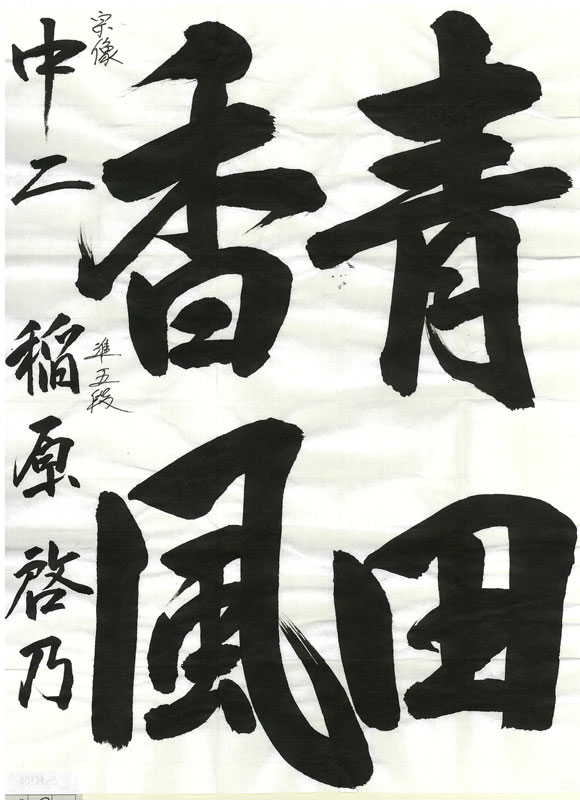 青田
香風
宗像
準五段
中二 稲原啓乃